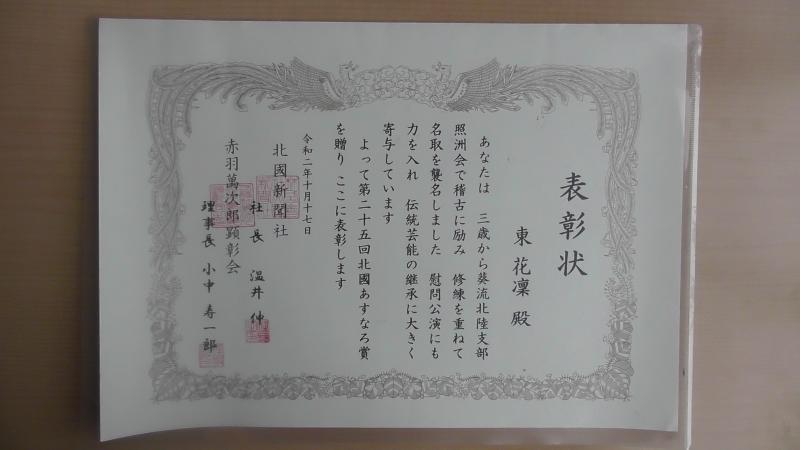 表彰状
東 花凜 殿
あなたは 三歳から葵流北陸支部
照洲会で稽古に励み 修練を重ねて
名取を襲名しました 慰問公演にも
力を入れ 伝統芸能の継承に大きく
寄与しています
よって第二十五回北國あすなろ賞
を贈り ここに表彰します
令和二年十月十七日
北國新聞社
社長 温井 伸
赤羽萬次郎顕彰会
理事長 小中 寿一郎